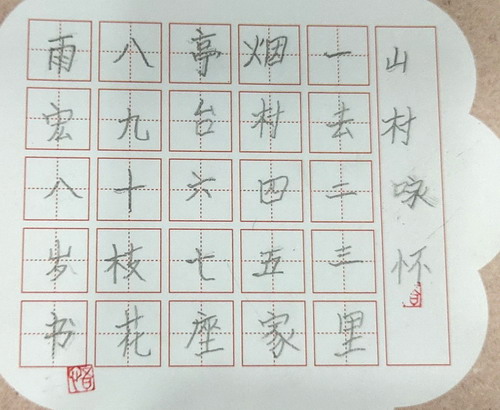 山村咏怀
一去二三里
烟村四五家
亭台六七座
八九十枝花
雨宏八岁书